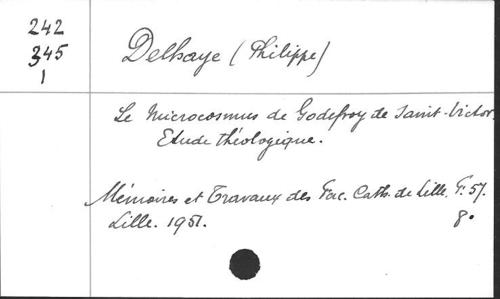 242
345
1
Delhaye (Philippe)
Le Microcosmus de Godefroy de Saint-Victor.
Etude théologique.
Mémoires et Travaux des Fac. Cath. de Lille. F: 57.
Lille. 1951. 8°